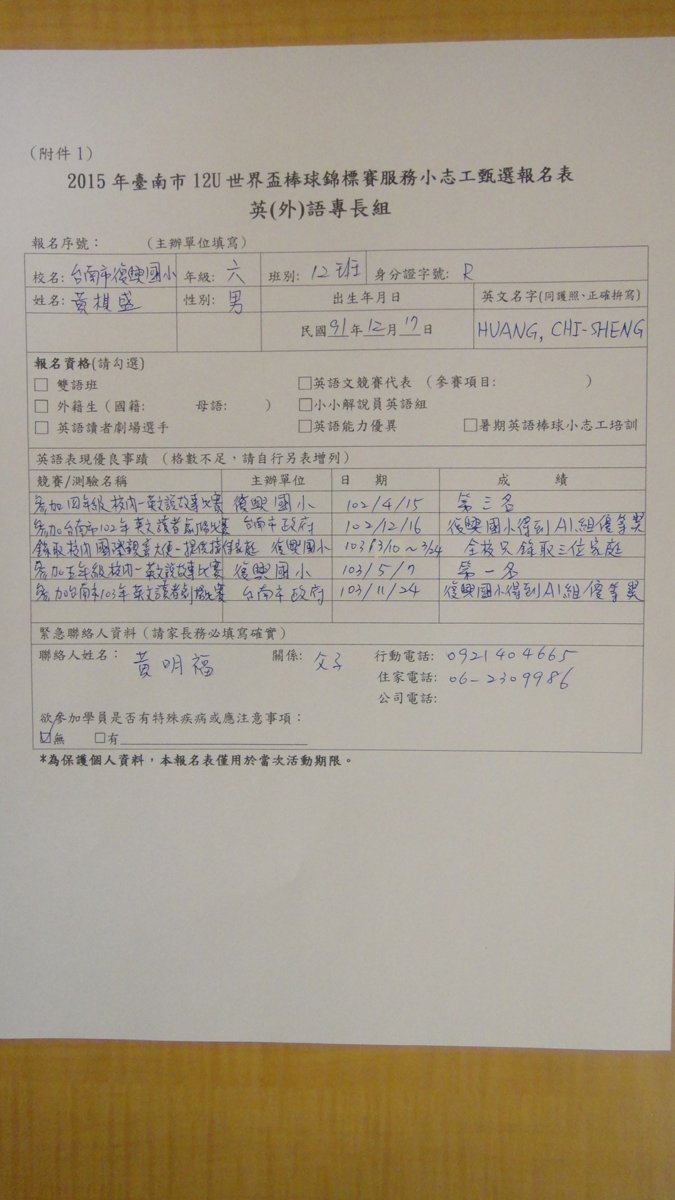 (附件 1)
2015 年臺南市 12U 世界盃棒球錦標賽服務小志工甄選報名表
英(外)語專長組
報名序號： (主辦單位填寫)
校名: 台南市復興國小 年級: 六 班別: 12班 身分證字號: R
姓名: 黃棋盛 性別: 男 出生年月日 英文名字(同護照、正確拚寫)
民國 91 年 12 月 17 日 HUANG, CHI-SHENG
報名資格(請勾選)
□ 雙語班 □英語文競賽代表 (參賽項目: )
□ 外籍生 (國籍: 母語: ) □小小解說員英語組
□ 英語讀者劇場選手 □英語能力優異 □暑期英語棒球小志工培訓
英語表現優良事蹟 (格數不足，請自行另表增列)
競賽/測驗名稱 主辦單位 日 期 成 績
參加四年級校內-英文說故事比賽 復興國小 102/4/15 第三名
參加台南市102年英文讀者劇場比賽 台南市政府 102/12/16 復興國小得到A1組優等獎
錄取校內國際親善大使-提供接待家庭 復興國小 103/3/10~3/24 全校只錄取三位家庭
參加五年級校內-英文說故事比賽 復興國小 103/5/7 第一名
參加台南市103年英文讀者劇場比賽 台南市政府 103/11/24 復興國小得到A1組優等獎
緊急聯絡人資料 (請家長務必填寫確實)
聯絡人姓名： 黃明福 關係: 父子 行動電話: 0921404665
住家電話: 06-2309986
公司電話:
欲參加學員是否有特殊疾病或應注意事項：
☑無 □有
*為保護個人資料，本報名表僅用於當次活動期限。